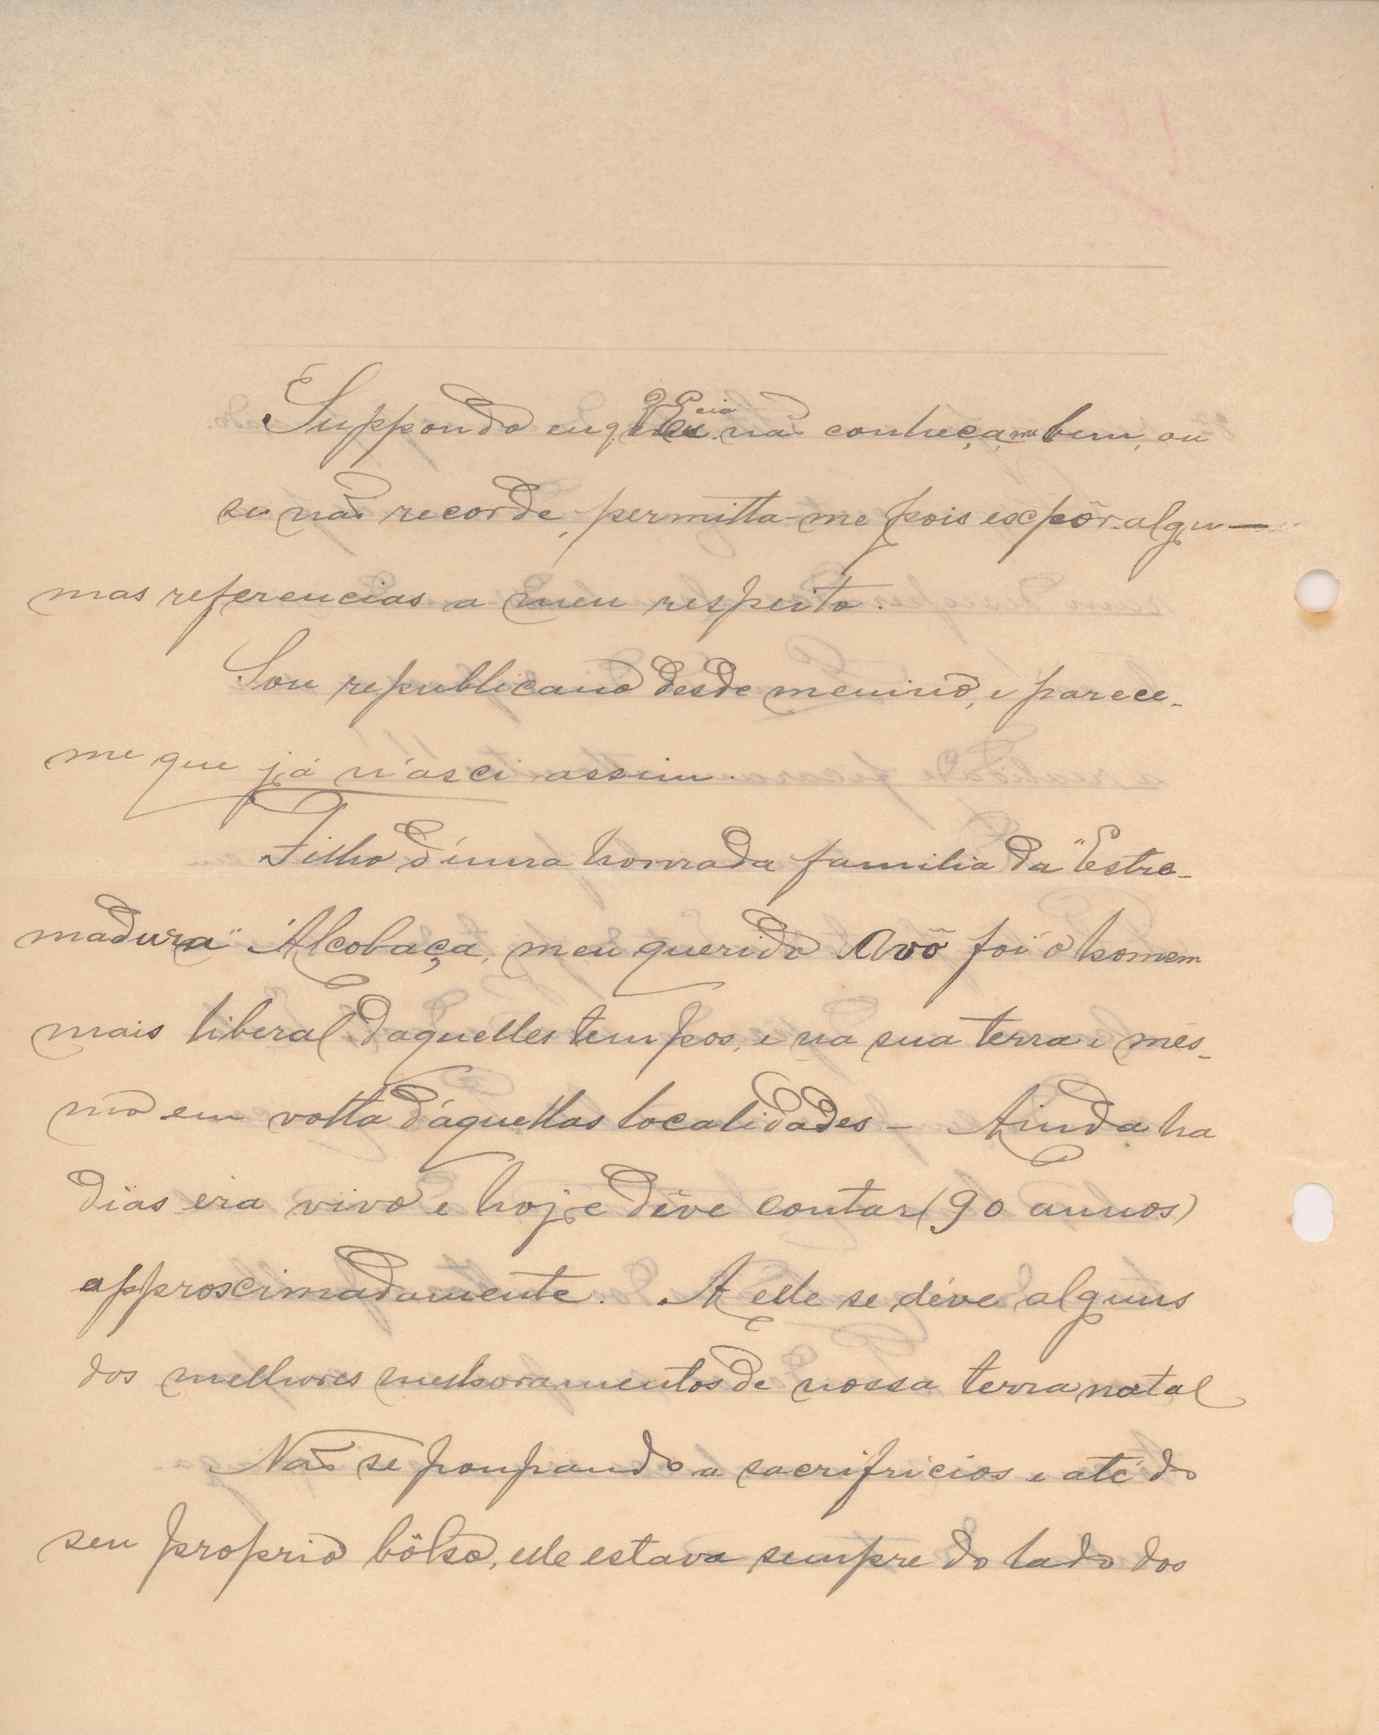 Suppondo eu q. V. Ex.cia não conheça-me bem, ou
se não recorde, permitta-me pois expôr algu-
mas referencias a meu respeito.
Sou republicano desde menino, e parece-
me que já n'asci assim.
Filho d'uma honrada familia da "Estre-
madura" Alcobaça, meu querido Avô foi o homem
mais liberal daquelles tempos, e na sua terra e mes-
mo em volta d'aquellas localidades — Ainda ha
dias era vivo e hoje déve contar (90 annos)
approscimadamente. A elle se déve alguns
dos melhores melhoramentos de nossa terra natal
Não se poupando a sacrifricios e até do
seu proprio bôlso, elle estava sempre do lado dos